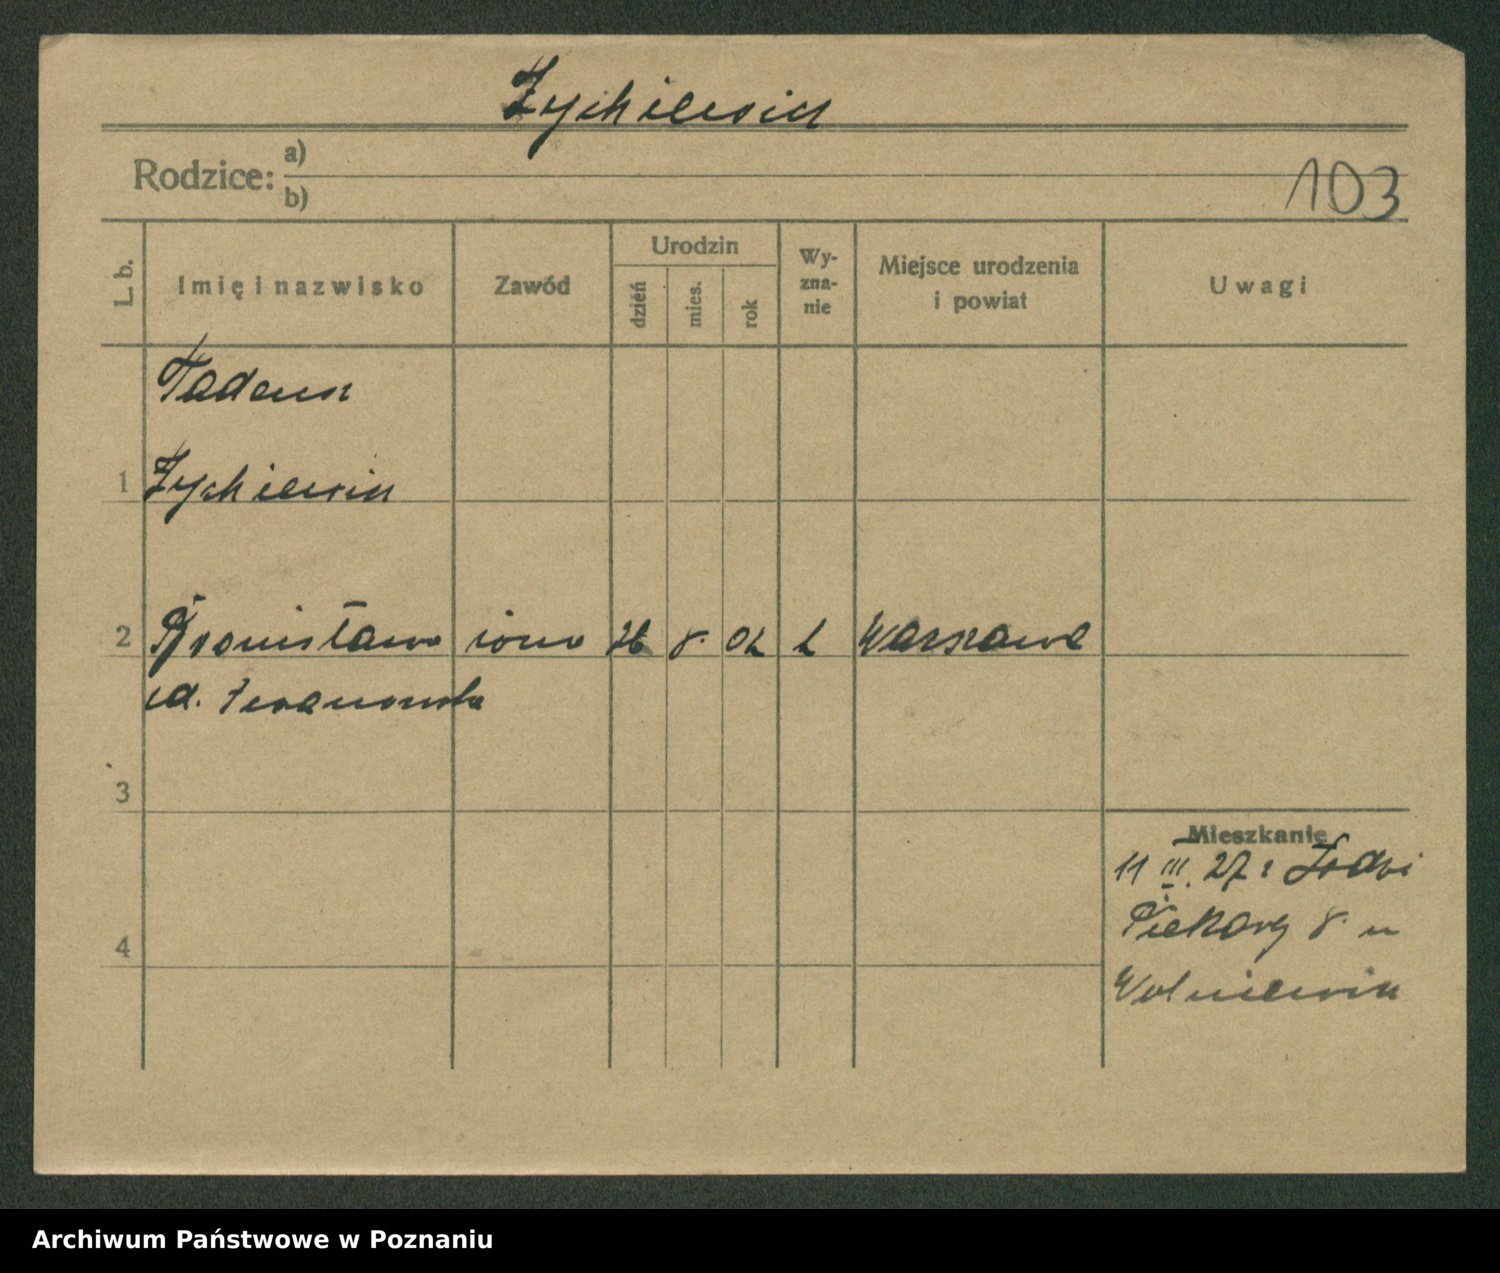 Zychiewicz
Rodzice: a)
b)
103
L. b.
Imię i nazwisko
Zawód
Urodzin
dzień
mies.
rok
Wy-
zna-
nie
Miejsce urodzenia
i powiat
Uwagi
Tadeusz
1 Zychiewicz
2 Bronisława żona 26 8. 02 Warszawa
3
Mieszkanie
11 III. 27 z Łodzi
Piekary 8. u
Wolniewicz
4
Archiwum Państwowe w Poznaniu